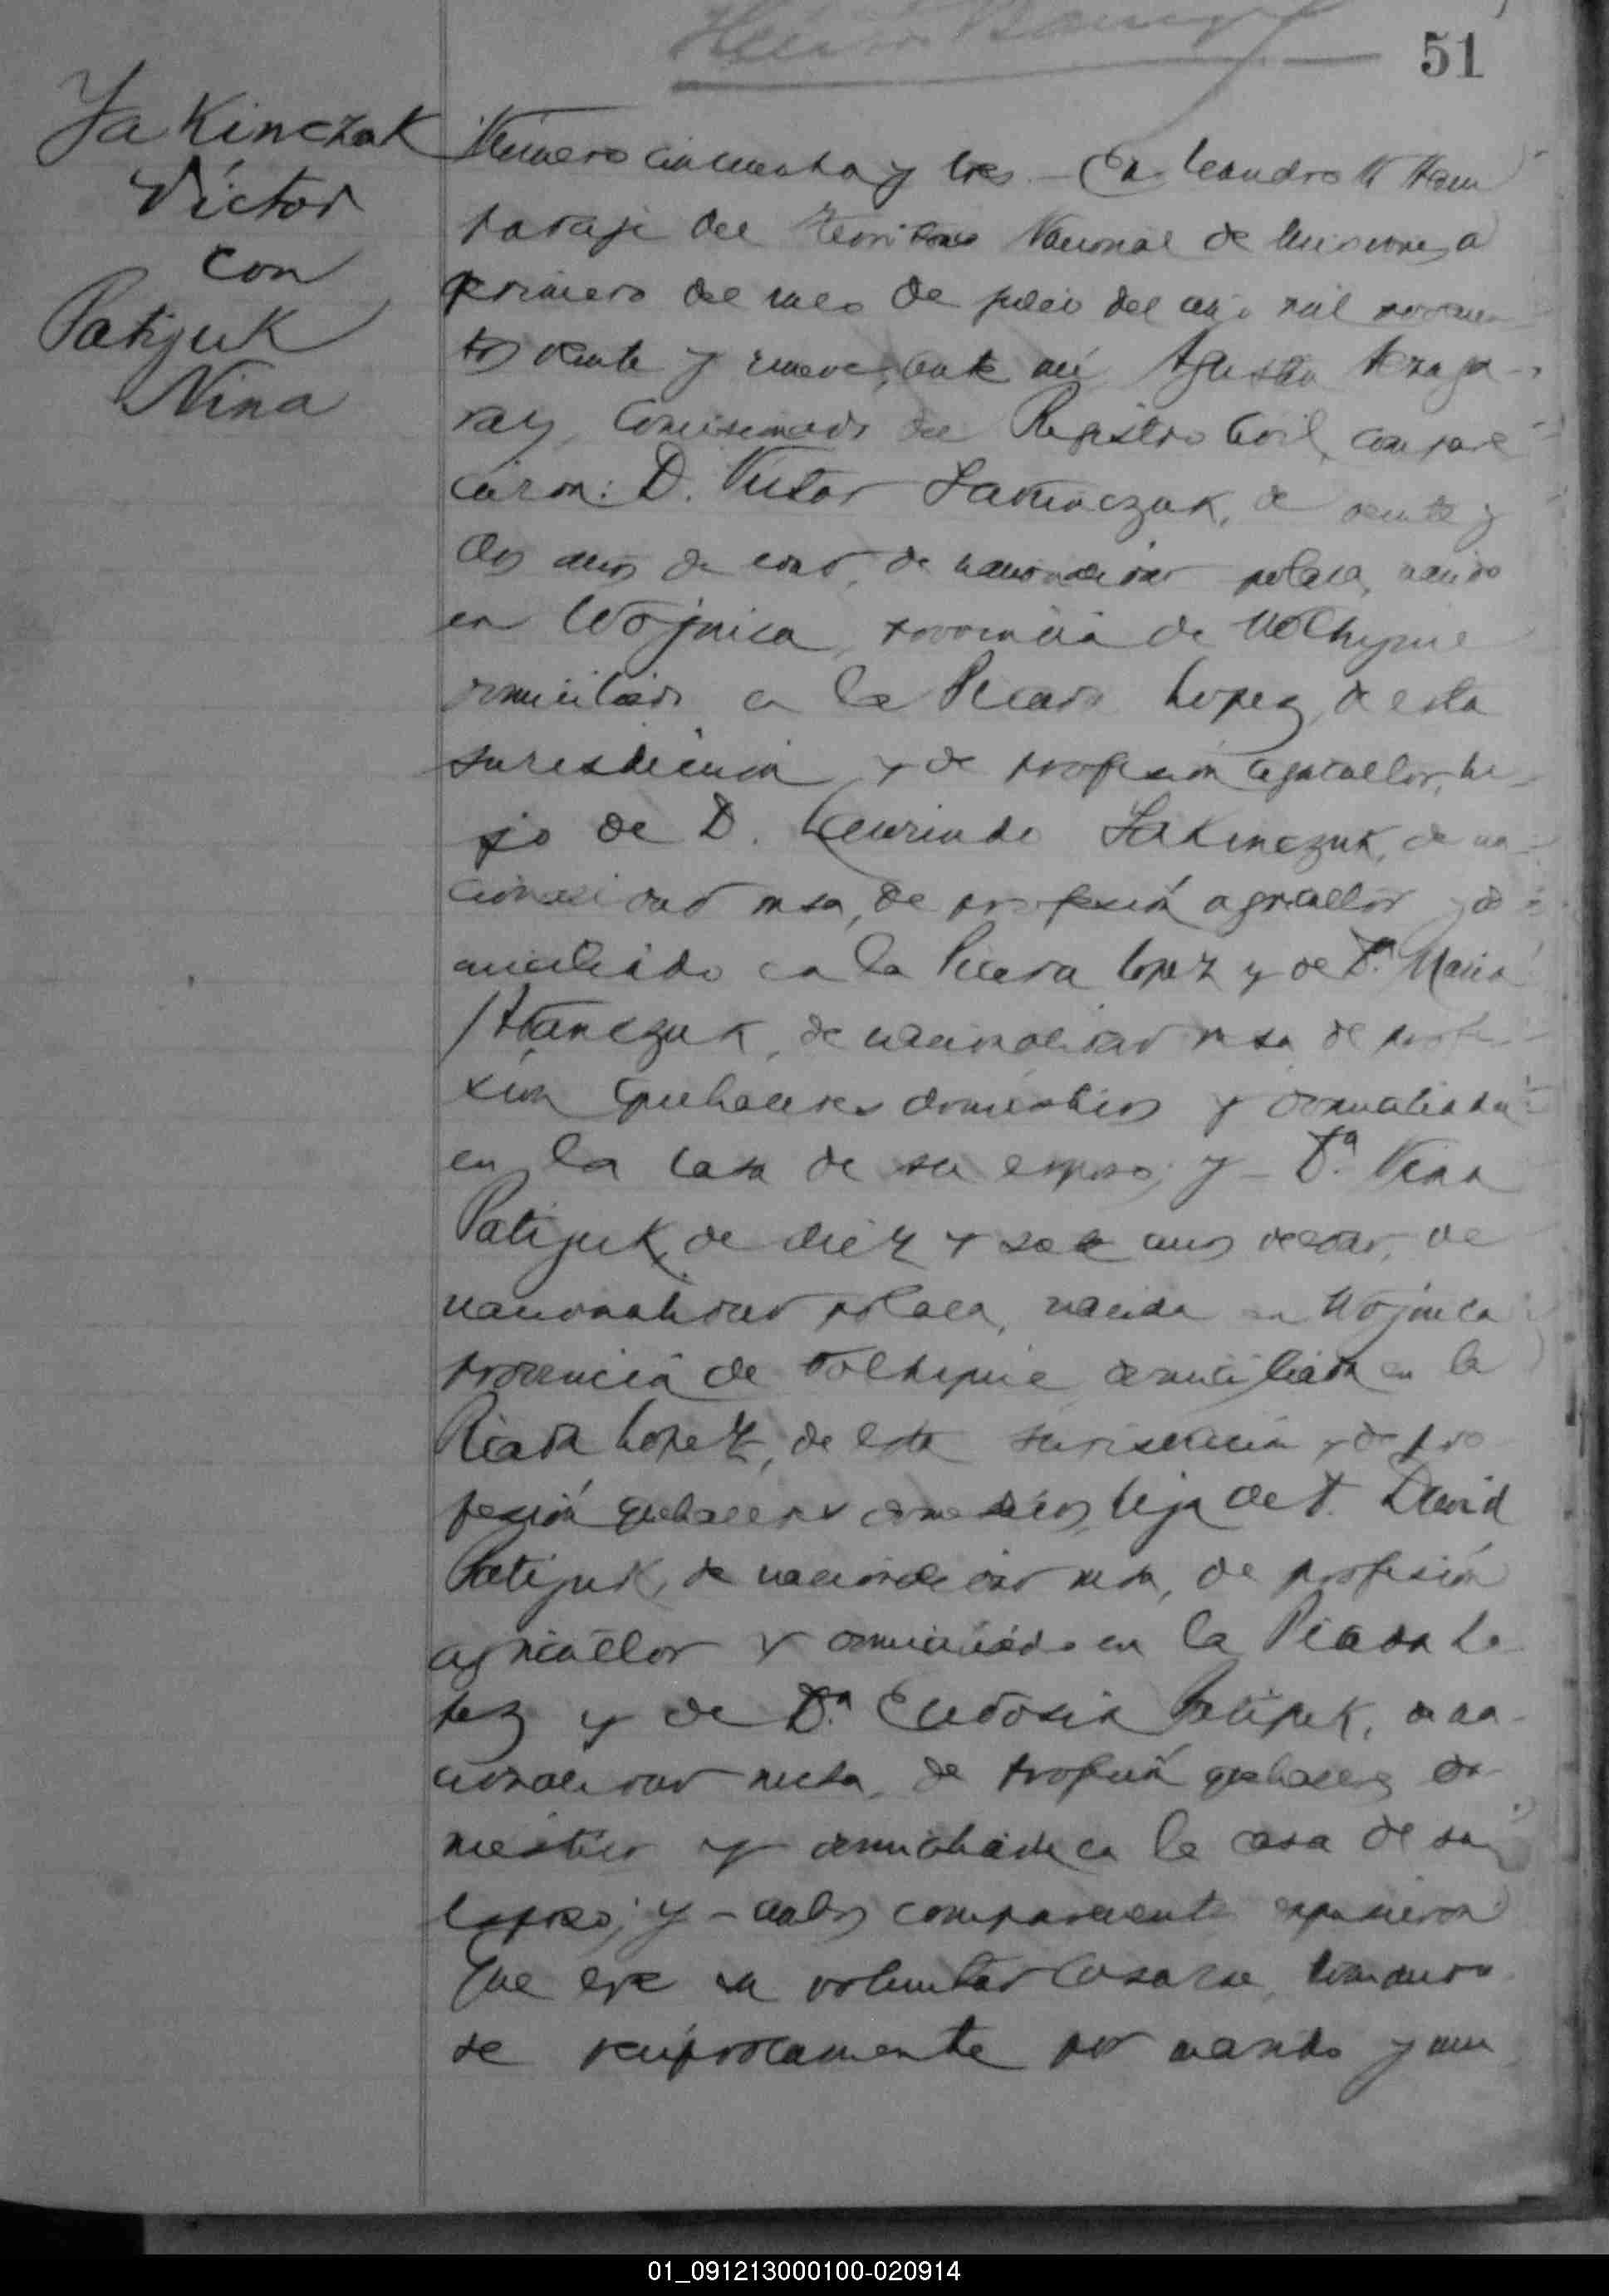 51
Jakinczak
Víctor
con
Patijuk
Nina
Número cincuenta y tres. — En Leandro N Alem
paraje del Territorio Nacional de Misiones, a
primero del mes de julio del año mil novecien
tos veinte y nueve, ante mí
ray, Comisionado del Registro Civil, compare
cieron: D. Victor Jakinczuk, de veinte y
dos años de edad, de nacionalidad polaca, nacido
en Wojnica, provincia de Wolhynie
domiciliado en la Picada Lopez, de esta
jurisdicción y de profesión agricultor, hi
jo de D. Jakinczuk, de na
cionalidad rusa, de profesión agricultor y do
miciliado en la Picada Lopez y de Da. Maria
de nacionalidad rusa de profe
sión quehaceres domésticos y domiciliada
en la casa de su esposo; y — Da. Nina
Patijuk, de diez y años de edad, de
nacionalidad polaca, nacida en Wojnica
provincia de Volhynie domiciliada en la
Picada Lopez, de esta jurisdicción y de pro
fesión quehaceres domésticos, hija de D. David
Patijuk, de nacionalidad rusa, de profesión
agricultor y domiciliado en la Picada Lo
pez y de Da. Eudosia Patijuk, de na-
cionalidad rusa, de profesión quehaceres do
mésticos y domiciliada en la casa de su
esposo; y — ambos comparecientes expusieron
Que era su voluntad casarse, tomando
se recíprocamente por marido y mu
01_091213000100-020914